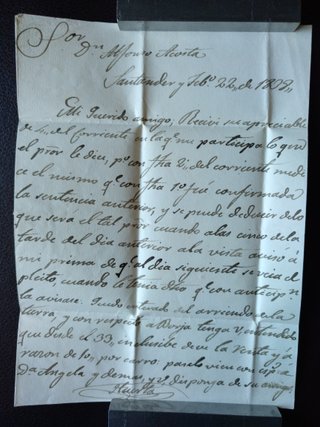 Sor
Dn Alfonso Acosta
Santander y Febo 22, de 1839,,
Mi Querido amigo, Recivi su apreciable
de 4, del corriente en la qe me participa lo que
el pror le dice, pr con fha 2, del corriente me di
ce el mismo qe con fha 1o fue confirmada
la sentencia anterior, y se puede deducir de lo
que sera el tal pror cuando a las cinco de la
tarde del dia anterior a la vista aviso á
mi prima de qe al dia siguiente se veia el
pleito, cuando le tenia dho qe con anticipn
la avisase. Quedo enterado del arriendo de la
tierra, y con respecto a Borja tengo entendido
que desde el 33, inclusive deve la renta y a
razon de 10, por carro: paselo vien con espa
Da Angela y demas, y V. disponga de su amigo
Huerta